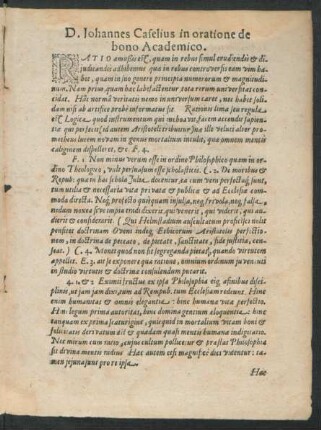 D. Iohannes Caselius in oratione de
bono Academico.
RATIO amussis est, quam in rebus simul erudiendis & di-
judicandis adhibemus qua in rebus controversis eam vim ha-
bet, quam in suo genere principia numerorum & magnitudi-
num. Nam prior, quam hac labefactentur tota rerum universitas con-
cidat. His normâ veritatis nemo in universum caret, sed
dam nisi ab artifice probè informatur. Rationis lima seu regula
est Logica quod instrumentum
qui perfecit id autem Aristoteli tribuerim ille velut alter
metheus lucem novam in genus mortalium intulit, quo omnem mentis
caliginem dispelleret, &c. F. 4.
F. 1 Non minus verum esse in ordine Philosophico quam in or-
dine Theologico, velit persuasum esse scholasticis. C. 2. De moribus &
Repub: quæ in has scholis Julia, docentur, ea cum vera perfectaq; sunt,
tum utilia & necessaria vita privatæ & publicæ & ad Ecclesiæ com-
moda directa. Neq; profectò quisquam injusta, neq; frivola, neq; falsa,
nedum nona scu impia tradi dixerit, qui venerit, qui viderit, qui au-
dierit & considerarit (Qui Helmstadium auscultatum
penitere doctrinam & vim indag. Ethicorum Aristotelis perfectio-
nem, in doctrina de peccato, de pietate, sanctitate, fide justitia, con-
juge.) C. 4. Monet quod non sit segreganda pietas, quando virtutem
appellet. E. 3. at se exponere qua ratione, omnium ordinum juvenes
in studiis virtutis & doctrina consulendum putarit.
4. 1. & 2 Eximii fructus ex ipsa Philosophia eiq, affinibus discipli-
nis, ut jam jam dixi, tum ad Rempub. tum Ecclesiam redeunt. Hinc
enim humanitas & omnis elegantia: hinc humana vita perfectio.
Hinc legum prima autoritas, hinc domina gentium eloquentia: hinc
tanquam ex prima scaturigine, quicquid in mortalium vitam boni & 
felicitatis derivatum sit & quadam quasi mentis humanæ indigentia.
Nec mirum cum juris, cujus cultum pollicetur & præstat Philosophia
sit divina mentis radius Hac autem etsi magnifice dici videntur: ta-
men jejuna sunt pro re ipsa
Hac